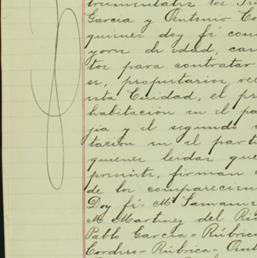 trumentales los
Garcia y Antonio Co
quienes doy fé cono
yores de edad, cas
tos para contratar
se, propietarios, ve
sta Ciudad, el pr
habitacion en el pa
ja y el segundo
tacion en el part
quienes leidas que
permite, firman
de los comparecien
Doy fé. M. Samani
M. Martinez del Ri
Pablo Garcia = Rúbric
Cordero = Rúbrica = Ant